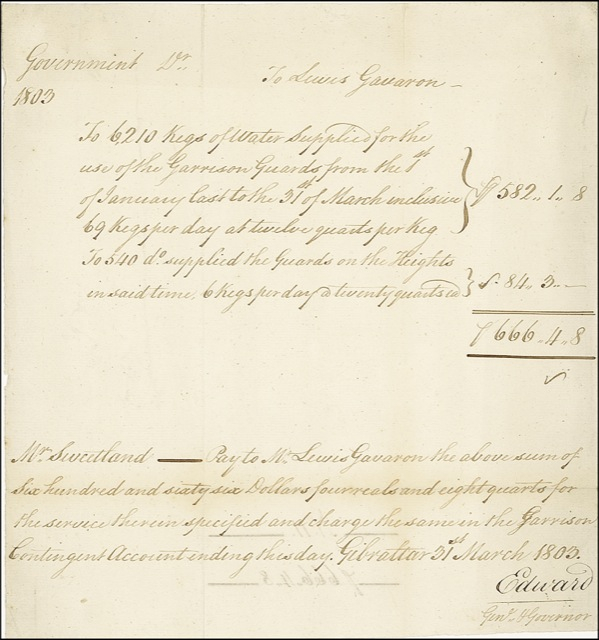 Government Dr.
To Lewis Gavaron
1803
To 6210 Kegs of Water Supplied for the
use of the Garrison Guards from the 1st
of January last to the 31st of March inclusive
69 Kegs per day at twelve quarts per Keg
$ 582 .. 1 .. 8
To 540 do. supplied the Guards on the Heights
in said time, 6 Kegs per day a twenty quarts
84 .. 3 .. —
666 .. 4 .. 8
Mr. Sweetland — Pay to Mr. Lewis Gavaron the above sum of
Six hundred and sixty six Dollars four reals and eight quarts for
the service therein specified and charge the same in the Garrison
Contingent Account ending this day. Gibraltar 31st March 1803.
Edward
Genl. & Governor